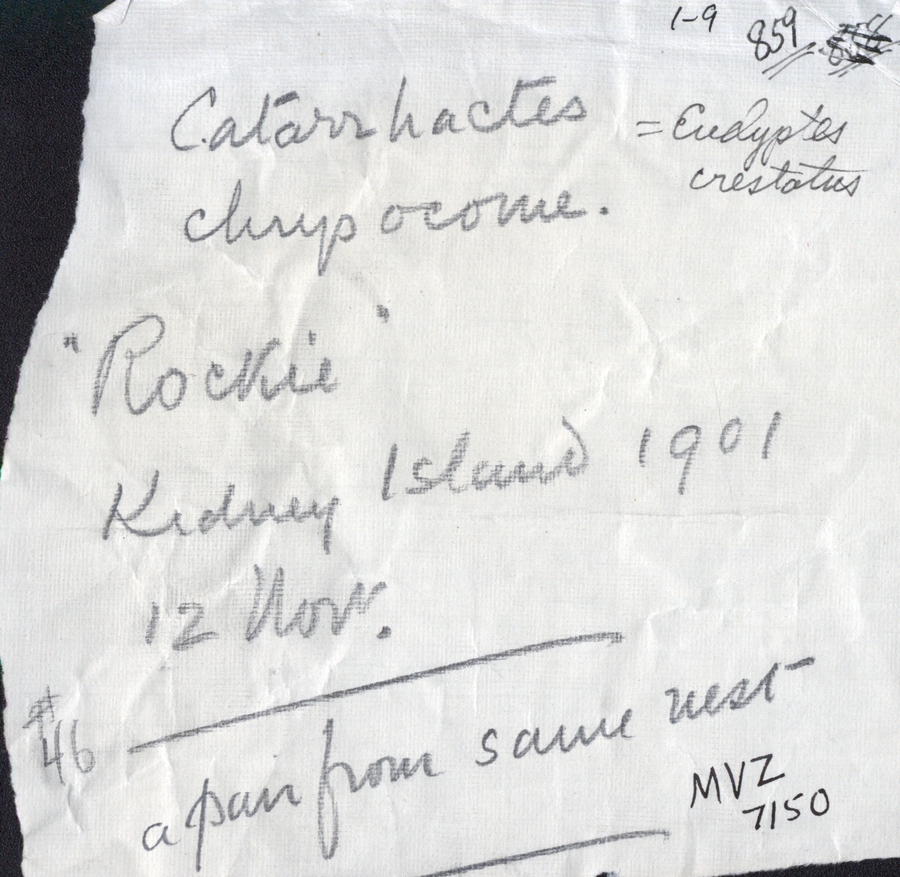 1-9 859
Catarrhactes
= Eudyptes
crestatus
chrysocome.
"Rockie"
Kidney Island 1901
12 Novr.
#46
a pair from same nest
MVZ
7150